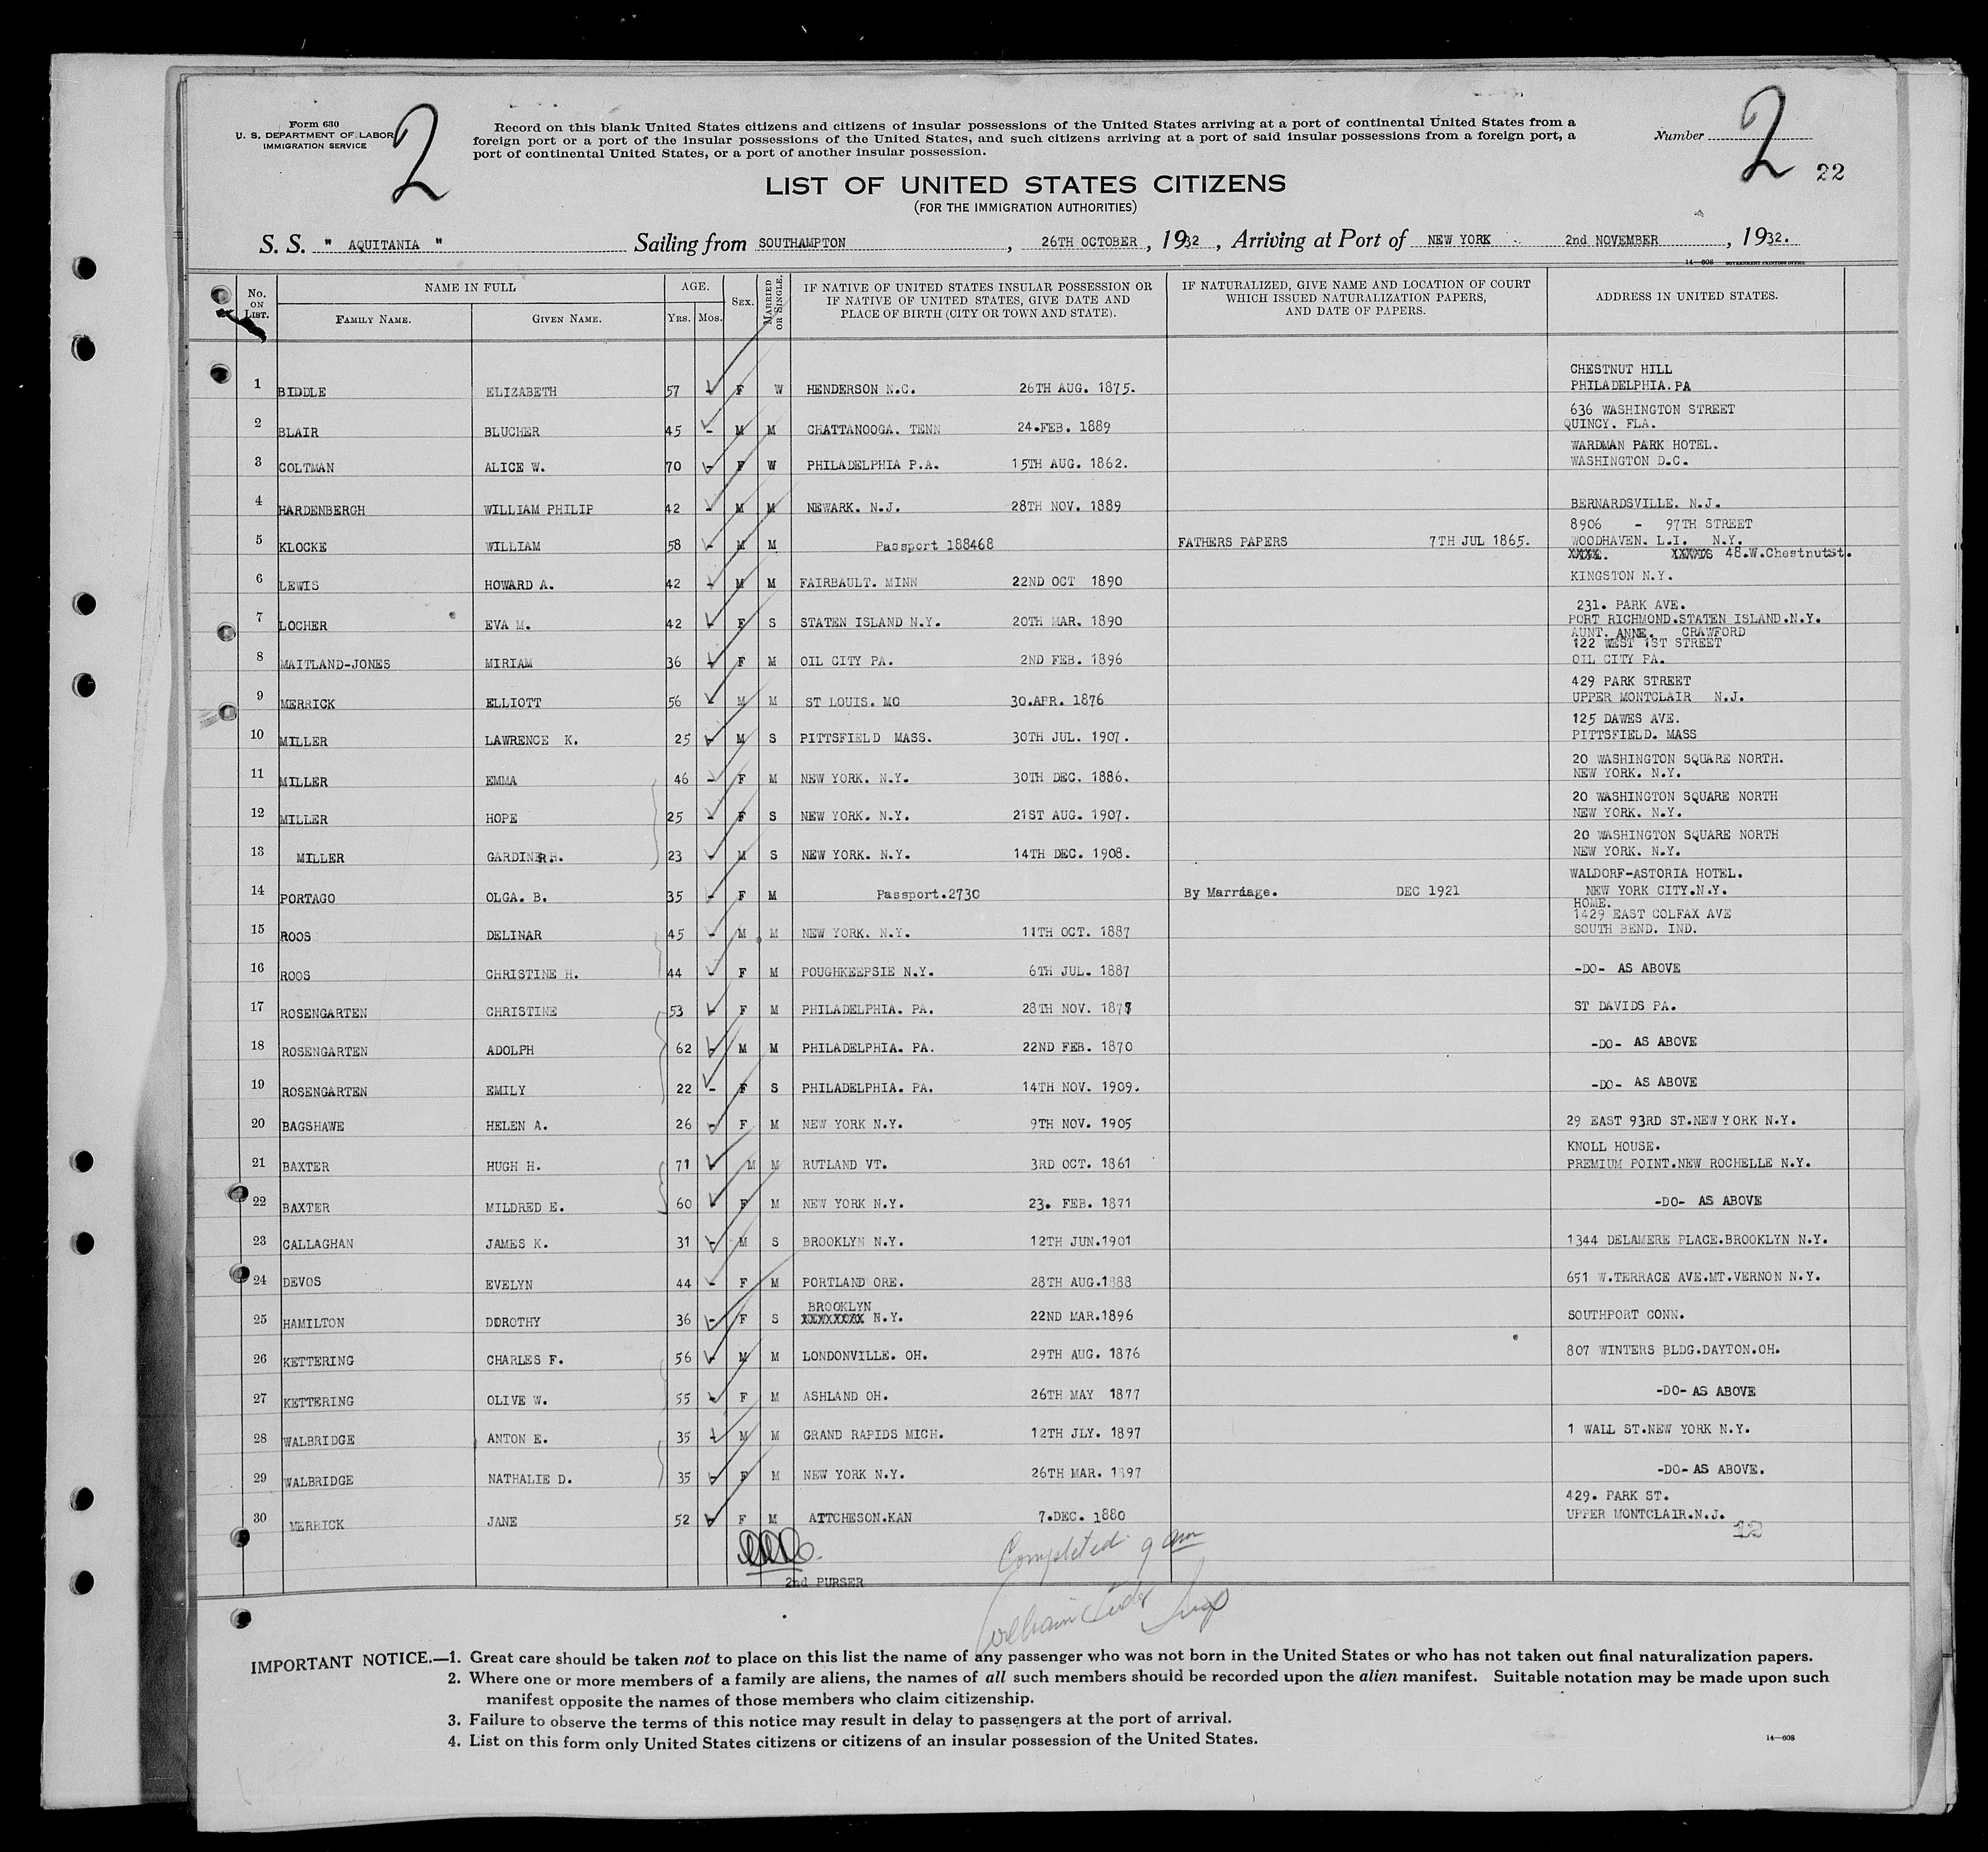 Form 630
U. S. DEPARTMENT OF LABOR
IMMIGRATION SERVICE
2
Record on this blank United States citizens and citizens of insular possessions of the United States arriving at a port of continental United States from a
foreign port or a port of the insular possessions of the United States, and such citizens arriving at a port of said insular possessions from a foreign port, a
port of continental United States, or a port of another insular possession.
Number 2
22
LIST OF UNITED STATES CITIZENS
(FOR THE IMMIGRATION AUTHORITIES)
S. S. " AQUITANIA " Sailing from SOUTHAMPTON, 26TH OCTOBER, 1932, Arriving at Port of NEW YORK 2nd NOVEMBER, 1932.
14—608 GOVERNMENT PRINTING OFFICE
No. ON LIST. NAME IN FULL AGE. SEX. MARRIED OR SINGLE. IF NATIVE OF UNITED STATES INSULAR POSSESSION OR IF NATIVE OF UNITED STATES, GIVE DATE AND PLACE OF BIRTH (CITY OR TOWN AND STATE). IF NATURALIZED, GIVE NAME AND LOCATION OF COURT WHICH ISSUED NATURALIZATION PAPERS, AND DATE OF PAPERS. ADDRESS IN UNITED STATES.
FAMILY NAME. GIVEN NAME. YRS. MOS.
CHESTNUT HILL
1 BIDDLE ELIZABETH 57 - F W HENDERSON N.C. 26TH AUG. 1875. PHILADELPHIA.PA
636 WASHINGTON STREET
2 BLAIR BLUCHER 45 - M M CHATTANOOGA. TENN 24.FEB. 1889 QUINCY. FLA.
WARDMAN PARK HOTEL.
3 COLTMAN ALICE W. 70 - F W PHILADELPHIA P.A. 15TH AUG. 1862. WASHINGTON D.C.
4 HARDENBERGH WILLIAM PHILIP 42 - M M NEWARK. N.J. 28TH NOV. 1889 BERNARDSVILLE. N.J.
8906 - 97TH STREET
5 KLOCKE WILLIAM 58 - M M Passport 188468 FATHERS PAPERS 7TH JUL 1865. WOODHAVEN. L.I. N.Y.
48.W.Chestnutst.
6 LEWIS HOWARD A. 42 - M M FAIRBAULT. MINN 22ND OCT 1890 KINGSTON N.Y.
231. PARK AVE.
7 LOCHER EVA M. 42 - F S STATEN ISLAND N.Y. 20TH MAR. 1890 PORT RICHMOND.STATEN ISLAND.N.Y.
AUNT. ANNE. CRAWFORD
122 WEST 1ST STREET
8 MAITLAND-JONES MIRIAM 36 - F M OIL CITY PA. 2ND FEB. 1896 OIL CITY PA.
429 PARK STREET
9 MERRICK ELLIOTT 56 - M M ST LOUIS. MO 30.APR. 1876 UPPER MONTCLAIR N.J.
125 DAWES AVE.
10 MILLER LAWRENCE K. 25 - M S PITTSFIELD MASS. 30TH JUL. 1907. PITTSFIELD. MASS
20 WASHINGTON SQUARE NORTH.
11 MILLER EMMA 46 - F M NEW YORK. N.Y. 30TH DEC. 1886. NEW YORK. N.Y.
20 WASHINGTON SQUARE NORTH
12 MILLER HOPE 25 - F S NEW YORK. N.Y. 21ST AUG. 1907. NEW YORK. N.Y.
20 WASHINGTON SQUARE NORTH
13 MILLER GARDINER H. 23 - M S NEW YORK. N.Y. 14TH DEC. 1908. NEW YORK. N.Y.
WALDORF-ASTORIA HOTEL.
14 PORTAGO OLGA. B. 35 - F M Passport.2730 By Marriage. DEC 1921 NEW YORK CITY.N.Y.
HOME.
1429 EAST COLFAX AVE
15 ROOS DELINAR 45 - M M NEW YORK. N.Y. 11TH OCT. 1887 SOUTH BEND. IND.
16 ROOS CHRISTINE H. 44 - F M POUGHKEEPSIE N.Y. 6TH JUL. 1887 -DO- AS ABOVE
17 ROSENGARTEN CHRISTINE 53 - F M PHILADELPHIA. PA. 28TH NOV. 1878 ST DAVIDS PA.
18 ROSENGARTEN ADOLPH 62 - M M PHILADELPHIA. PA. 22ND FEB. 1870 -DO- AS ABOVE
19 ROSENGARTEN EMILY 22 - F S PHILADELPHIA. PA. 14TH NOV. 1909. -DO- AS ABOVE
20 BAGSHAWE HELEN A. 26 - F M NEW YORK N.Y. 9TH NOV. 1905 29 EAST 93RD ST.NEW YORK N.Y.
KNOLL HOUSE.
21 BAXTER HUGH H. 71 - M M RUTLAND VT. 3RD OCT. 1861 PREMIUM POINT.NEW ROCHELLE N.Y.
22 BAXTER MILDRED E. 60 - F M NEW YORK N.Y. 23. FEB. 1871 -DO- AS ABOVE
23 CALLAGHAN JAMES K. 31 - M S BROOKLYN N.Y. 12TH JUN.1901 1344 DELAMERE PLACE.BROOKLYN N.Y.
24 DEVOS EVELYN 44 - F M PORTLAND ORE. 28TH AUG.1888 651 W.TERRACE AVE.MT.VERNON N.Y.
BROOKLYN
25 HAMILTON DOROTHY 36 - F S N.Y. 22ND MAR.1896 SOUTHPORT CONN.
26 KETTERING CHARLES F. 56 - M M LONDONVILLE. OH. 29TH AUG. 1876 807 WINTERS BLDG.DAYTON.OH.
27 KETTERING OLIVE W. 55 - F M ASHLAND OH. 26TH MAY 1877 -DO- AS ABOVE
28 WALBRIDGE ANTON E. 35 - M M GRAND RAPIDS MICH. 12TH JLY. 1897 1 WALL ST.NEW YORK N.Y.
29 WALBRIDGE NATHALIE D. 35 - F M NEW YORK N.Y. 26TH MAR. 1897 -DO- AS ABOVE.
429. PARK ST.
30 MERRICK JANE 52 - F M ATTCHESON.KAN 7.DEC. 1880 UPPER MONTCLAIR.N.J.
12
Completed 9 am
2nd PURSER
IMPORTANT NOTICE.—1. Great care should be taken not to place on this list the name of any passenger who was not born in the United States or who has not taken out final naturalization papers.
2. Where one or more members of a family are aliens, the names of all such members should be recorded upon the alien manifest. Suitable notation may be made upon such
manifest opposite the names of those members who claim citizenship.
3. Failure to observe the terms of this notice may result in delay to passengers at the port of arrival.
4. List on this form only United States citizens or citizens of an insular possession of the United States.
14—608